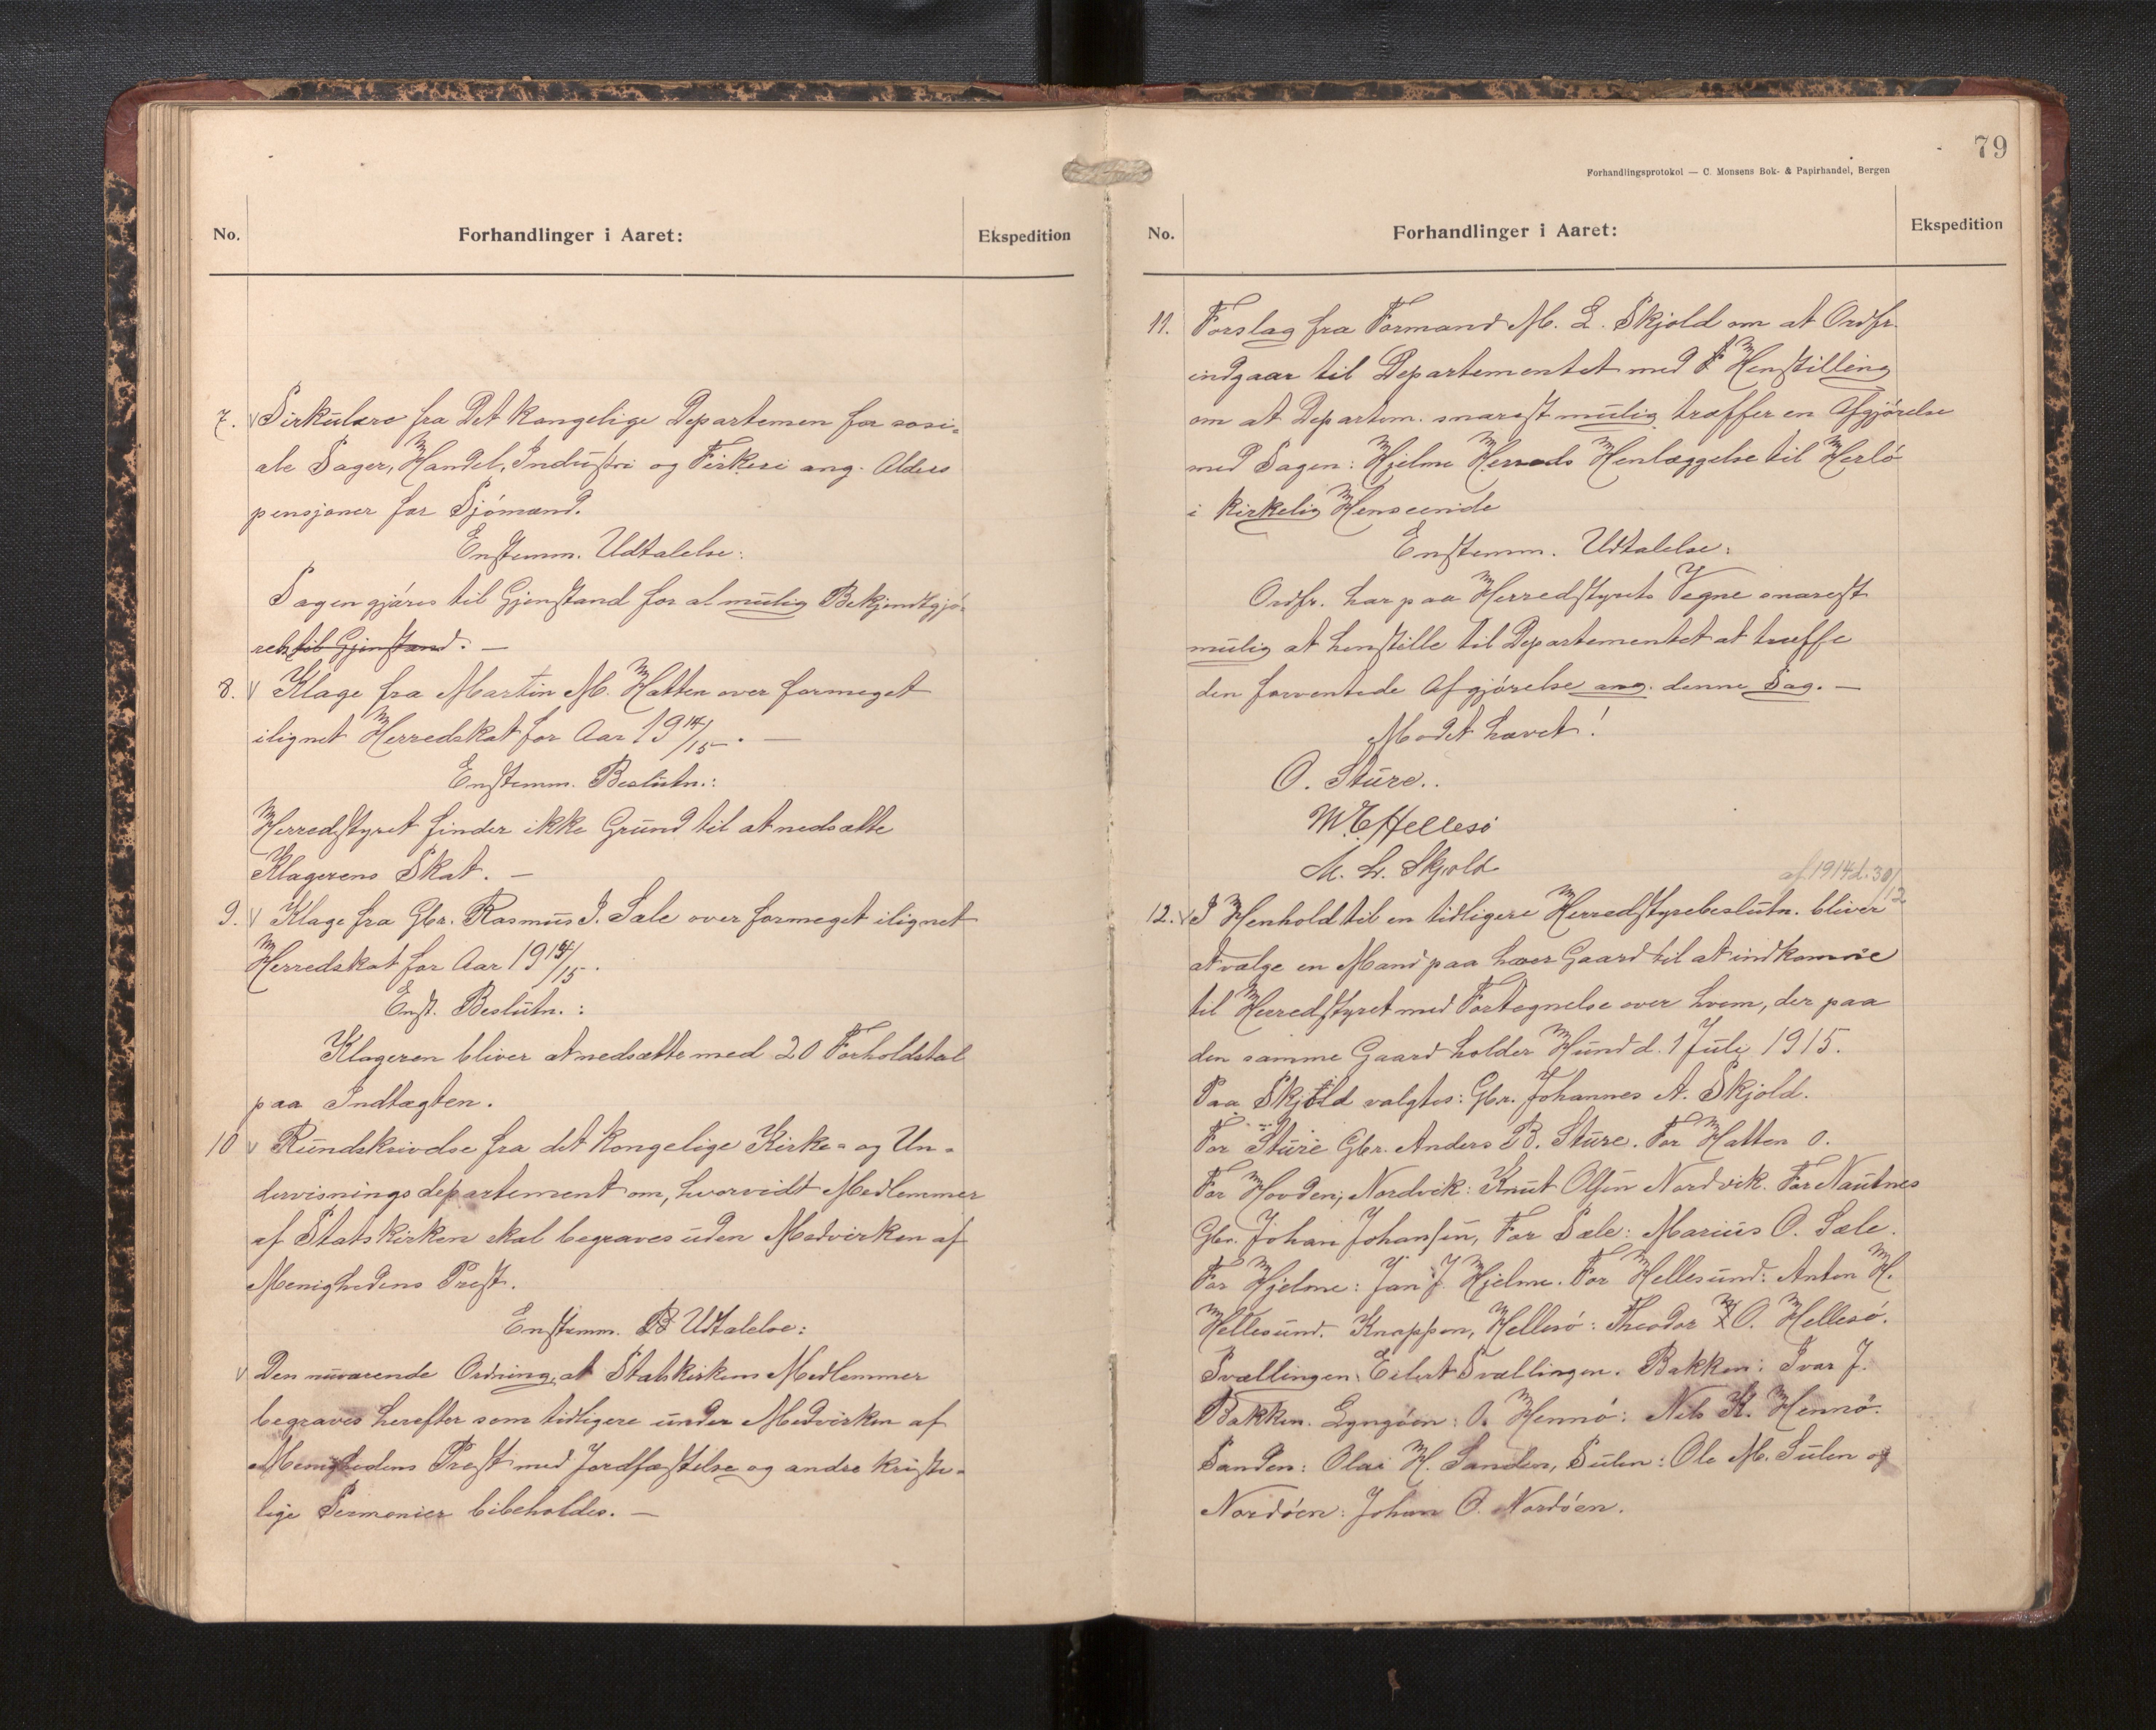 No. Forhandlinger i Aaret: Ekspedition
7. Sirkulære fra Det kongelige Departemen for sosi-
ale Sager, Handel, Industri og Fiskeri ang. Alders
pensjoner for Sjömænd.
Enstemm. Udtalelse:
Sagen gjöres til Gjenstand for al mulig Bekjendtgjö-
relse til Gjenstand. —
8. Klage fra Martin M. Hatten over formeget
ilignet Herredskat for Aar 1914/15. —
Enstemm. Beslutn.:
Herredstyret finder ikke Grund til at nedsætte
Klagerens Skat. —
9. Klage fra Gbr. Rasmus I. Sæle over formeget ilignet
Herredskat for Aar 1914/15.
Enst. Beslutn.:
Klageren bliver at nedsætte med 20 Forholdstal
paa Indtægten.
10 Rundskrivelse fra det kongelige Kirke- og Un-
dervisningsdepartement om, hvorvidt Medlemmer
af Statskirken skal begraves uden Medvirken af
Menighedens Prest.
Enstemm. B Udtalelse:
Den nuværende Ordning, at Statskirkens Medlemmer
begraves herefter som tidligere under Medvirken af
Menighedens Prest med Jordfæstelse og andre kriste-
lige Sermonier bibeholdes. —
79
Forhandlingsprotokol — C. Monsens Bok- & Papirhandel, Bergen
No. Forhandlinger i Aaret: Ekspedition
11. Forslag fra Formand M. L. Skjold om at Ordfr.
indgaar til Departementet med Henstilling
om at Departem. snarest mulig træffer en Afgjörelse
med Sagen: Hjelme Herreds Henlæggelse til Herlö
i kirkelig Henseende
Enstemm. Udtalelse:
Ordfr. har paa Herredstyrets Vegne snarest
mulig at henstille til Departementet at træffe
den forventede Afgjörelse ang. denne Sag. —
Mödet hævet!
O. Sture..
M. E. Hellesö
M. L. Skjold
af 1914 d. 30/12
12. I Henhold til en tidligere Herredstyrebeslutn. bliver
at vælge en Mand paa hver Gaard til at indkomme
til Herredstyret med Fortegnelse over hvem, der paa
den samme Gaard holder Hund d. 1 Juli 1915.
Paa Skjold valgtes: Gbr. Johannes A. Skjold.
For Sture Gbr. Anders B. Sture. For Hatten O.
For Hovden, Nordvik: Knut Olsen Nordvik. For Nautnes
Gbr. Johan Johansen, For Sæle: Marius O. Sæle.
For Hjelme: Jan J. Hjelme. For Hellesund: Anton H.
Hellesund. Knappen, Hellesö: Theodor O. Hellesö.
Svællingen: Eilert Svællingen. Bakken: Ivar J.
Bakken. Lyngöen: O. Hennö: Nils K. Hennö.
Sanden: Olai H. Sanden, Sulen: Ole M. Sulen og
Nordöen: Johan O. Nordöen.